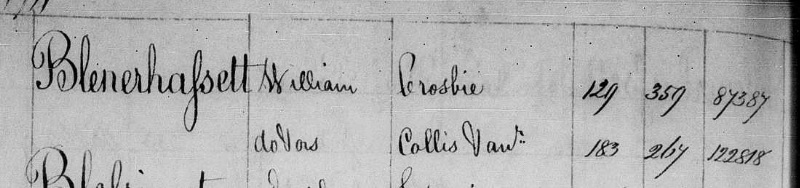 Blenerhassett William Crosbie 129 359 87387
do Vors Collis Vaw.t: 183 267 122818